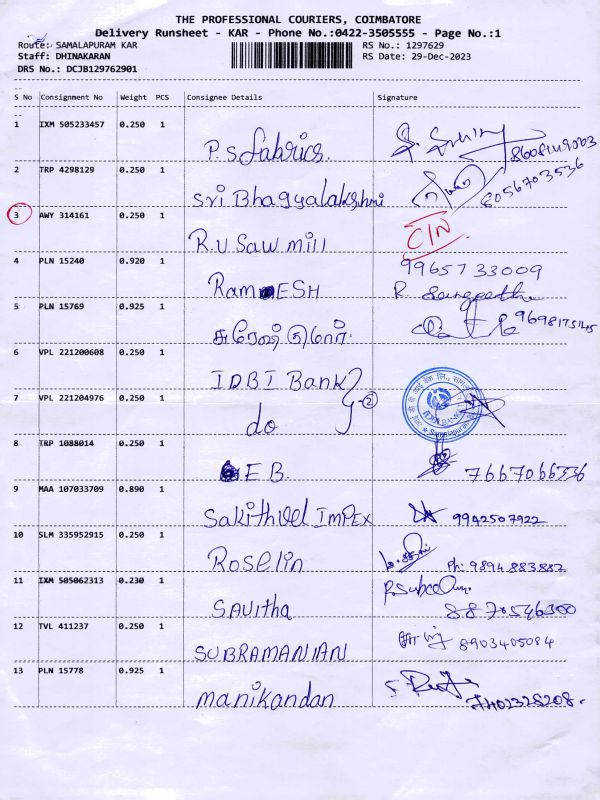 THE PROFESSIONAL COURIERS, COIMBATORE
Delivery Runsheet - KAR - Phone No.:0422-3505555 - Page No.:1
Route: SAMALAPURAM KAR RS No.: 1297629
Staff: DHINAKARAN RS Date: 29-Dec-2023
DRS No.: DCJB129762901
S No Consignment No Weight PCS Consignee Details Signature
1 IXM 505233457 0.250 1 P.S fabrics.
2 TRP 4298129 0.250 1 Sri Bhagyalakshmi 8056703536
3 AWY 314161 0.250 1 R.U Saw mill C/N
4 PLN 15240 0.920 1 RamESH 99657 33009
5 PLN 15769 0.925 1 சுரேஷ் குமார்.
6 VPL 221200608 0.250 1 IDBI Bank
7 VPL 221204976 0.250 1 do 2
8 TRP 1088014 0.250 1 EB. 7667066536
9 MAA 107033709 0.890 1 Sakithvel ImPEX 9942507922
10 SLM 335952915 0.250 1 Roselin Ph: 9894 883882
11 IXM 505062313 0.230 1 Savitha
12 TVL 411237 0.250 1 SUBRAMANIAN 8903405084
13 PLN 15778 0.925 1 manikandan 7402328208.